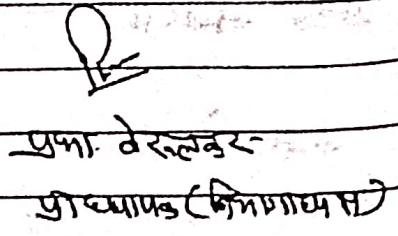 प्रभा. वेरूलकर
प्राध्यापक (विभागाध्यक्ष)